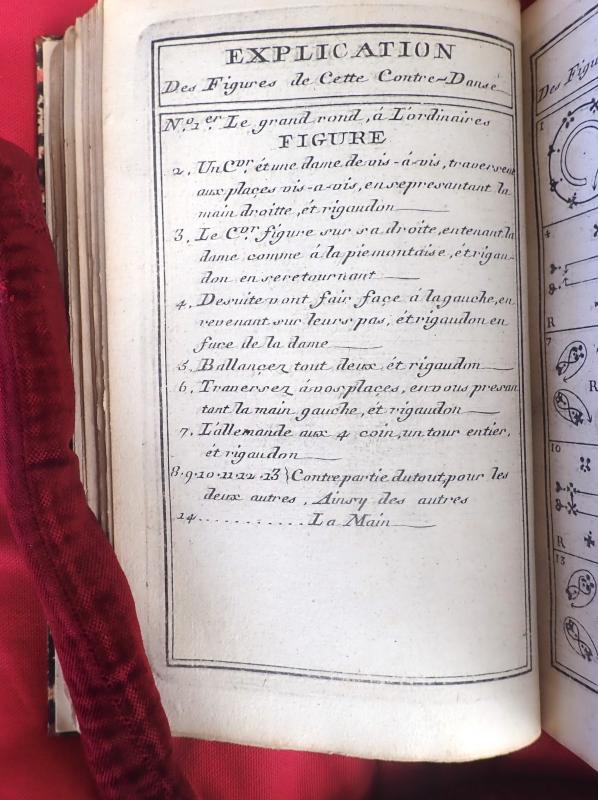 EXPLICATION
Des Figures de Cette Contre-Danse
N.o 1.er Le grand rond, á L'ordinaires
FIGURE
2. Un C.vr ét une dame de vis-á-vis, traversent
aux places vis-a-vis, en se presantant la
main droitte, ét rigaudon
3. Le C.vr figure sur sa droite, entenant la
dame comme á la piemontaise, ét rigau-
don en se retournant
4. Desuite vont fair façe á la gauche, en
revenant sur leurs pas, ét rigaudon en
face de la dame
5. Ballançez tout deux, ét rigaudon
6. Traversez á vos places, en vous presan
tant la main gauche, ét rigaudon
7. L'allemande aux 4 coin, un tour entier,
ét rigaudon
8.9.10.11.12.13} Contre partie du tout, pour les
deux autres, Ainsy des autres
14............La Main
Des Figu
1
4
R
7
R
10
R
13